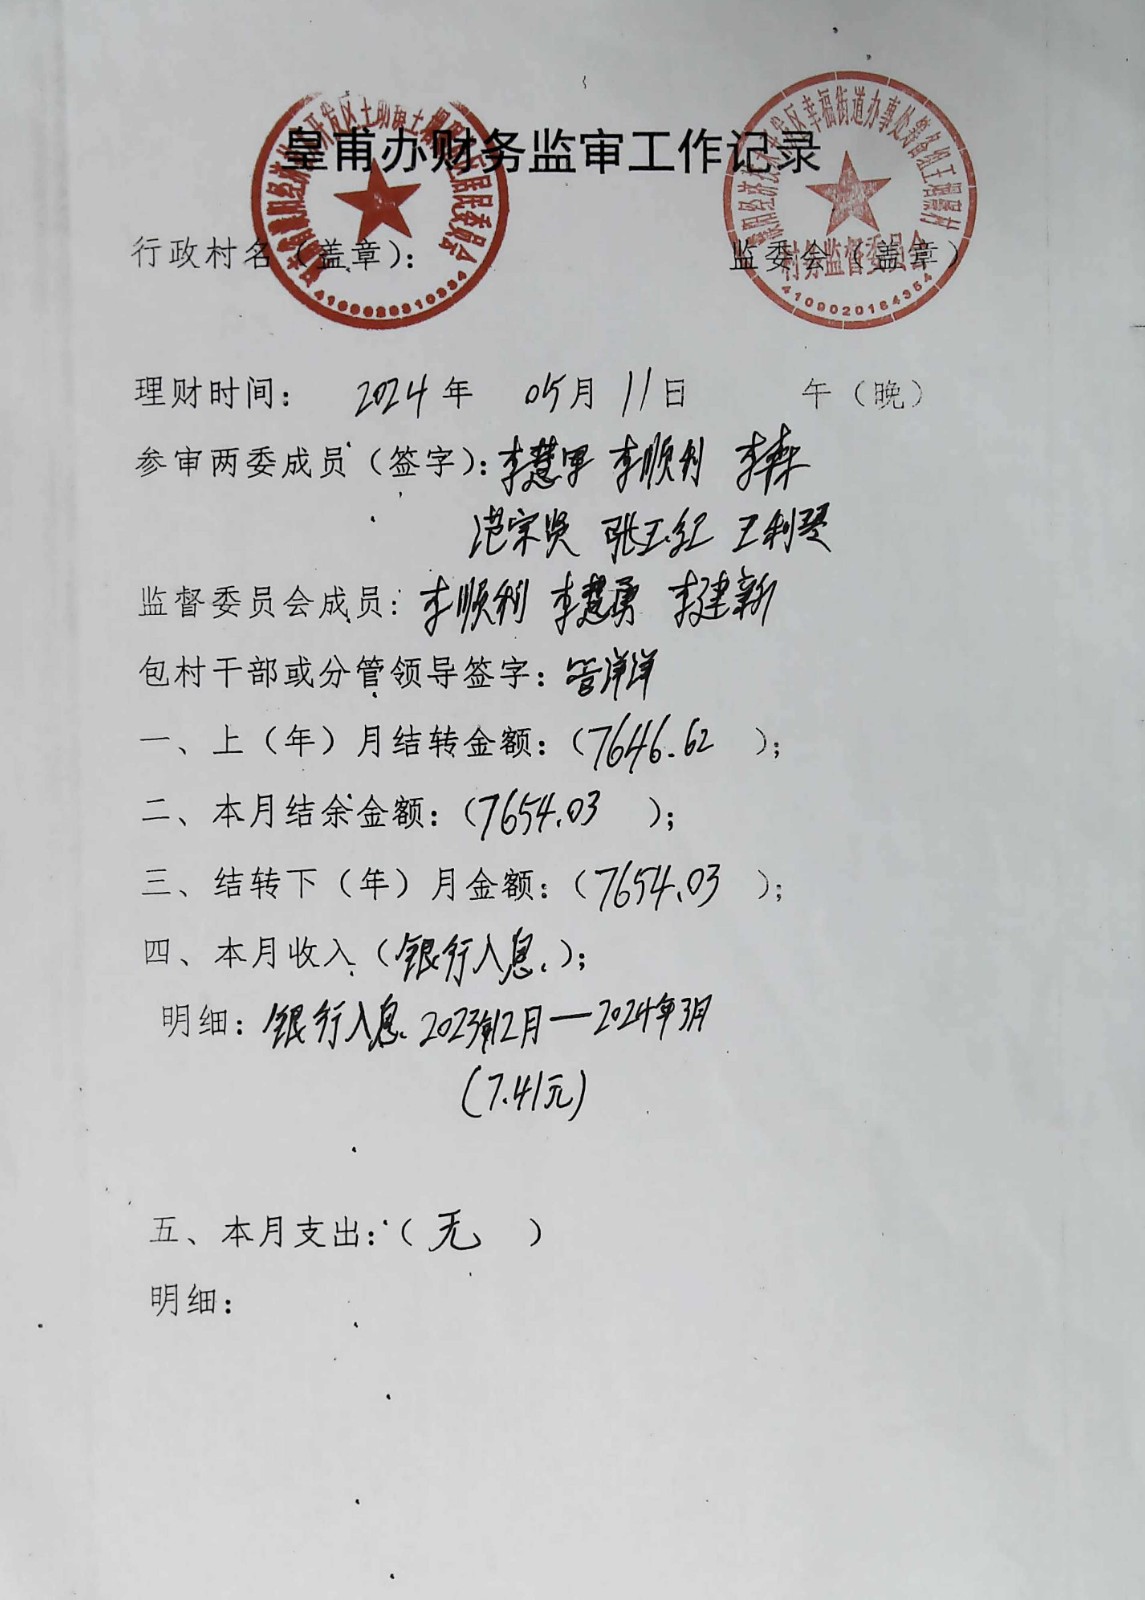 皇甫办财务监审工作记录
行政村名（盖章）：
监委会（盖章）
村务监督委员会
4109020164354
理财时间： 2024年 05月11日 午（晚）
参审两委成员（签字）：李慧军 李顺利 李森
范宗贤 张玉红 王利琴
监督委员会成员：李顺利 李慧勇 李建新
包村干部或分管领导签字：管洋洋
一、上（年）月结转金额：（7646.62 ）；
二、本月结余金额：（7654.03 ）；
三、结转下（年）月金额：（7654.03 ）；
四、本月收入（银行入息.）；
明细：银行入息. 2023年12月—2024年3月
（7.41元）
五、本月支出：（无 ）
明细：